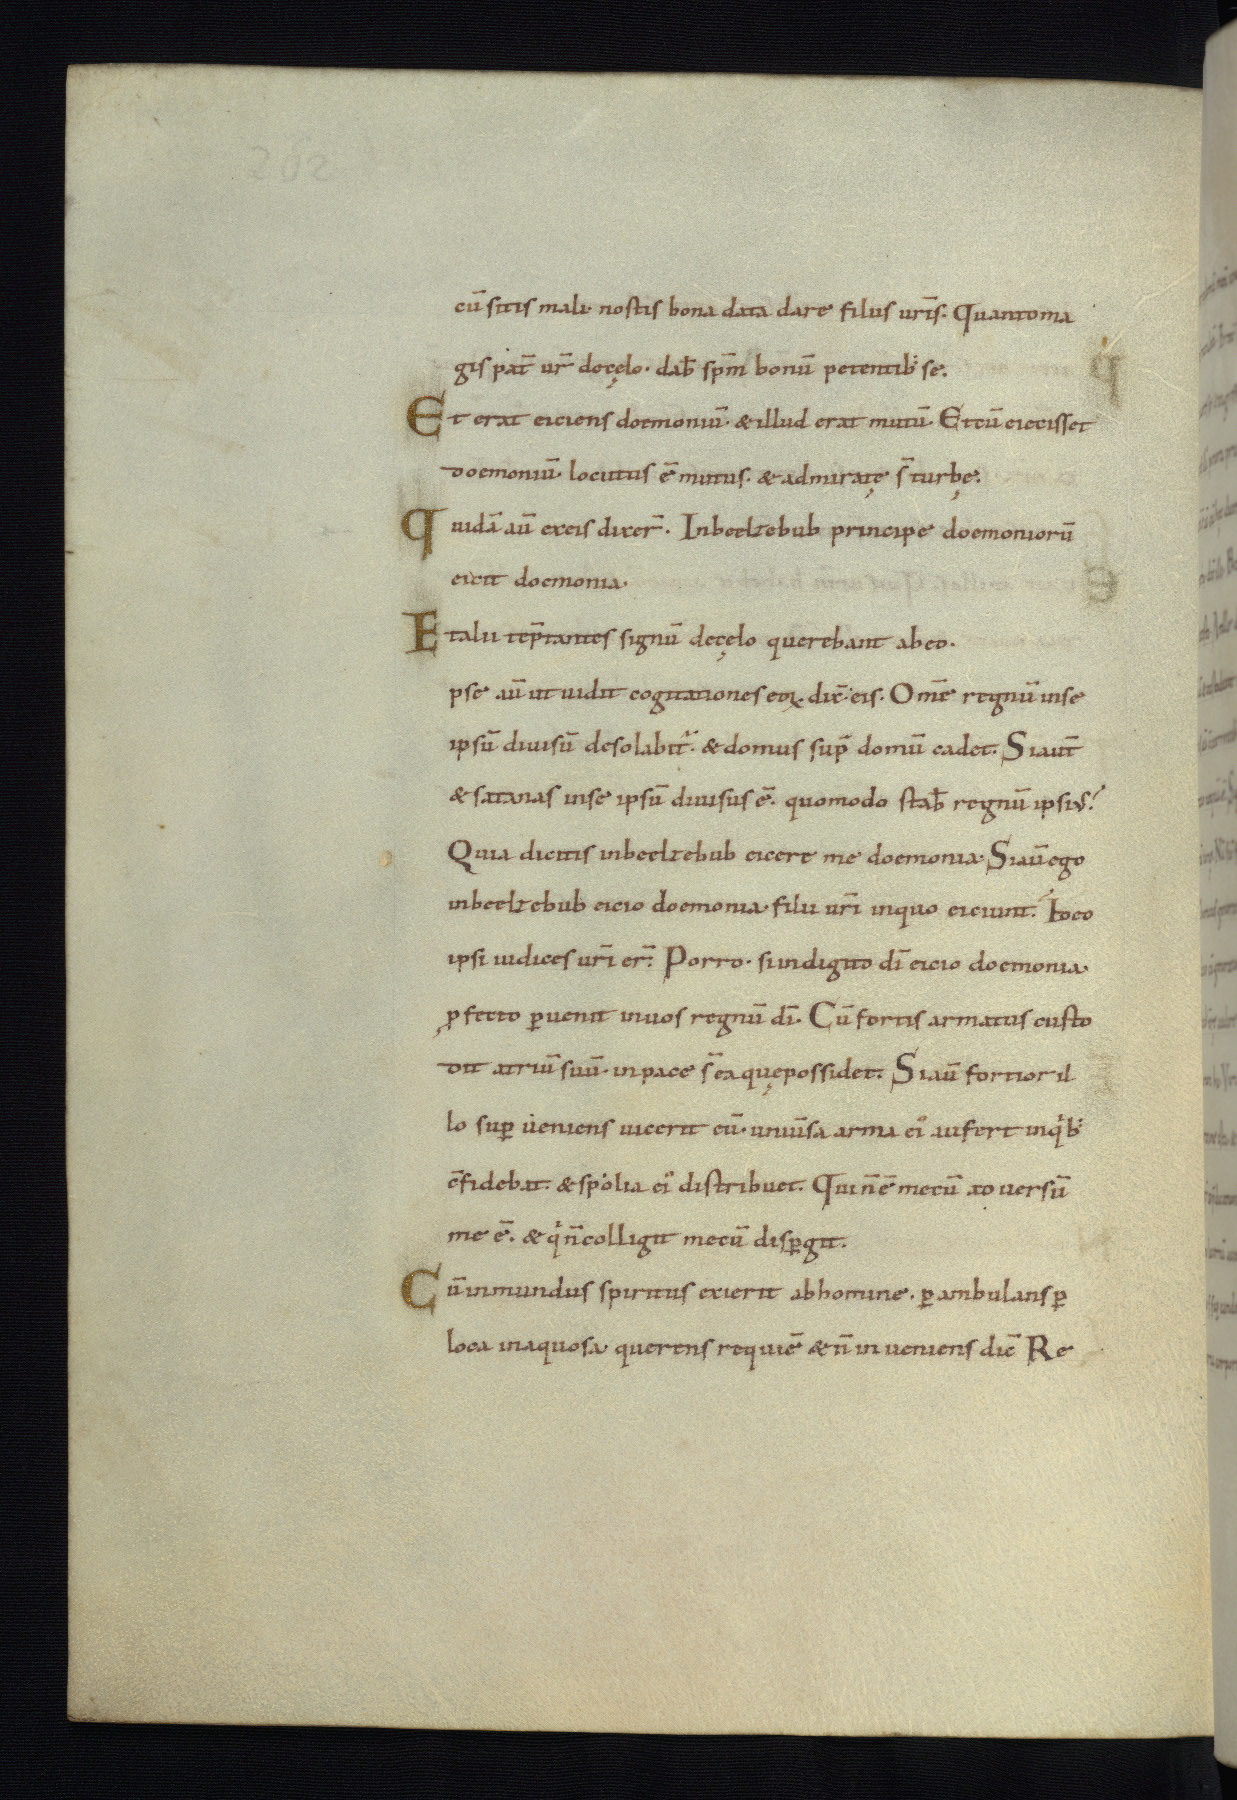 cū sitis mali· nostis bona data dare filiis ur̄is. Quanto ma
gis pat̄ ur̄ decęlo· dab̄ sp̄m bonū petentib; se.
Et erat eiciens doemoniū· & illud erat mutū. Et cū eiecisset
doemoniū· locutus ē mutus· & admiratę s̄ turbę.
Quidā aū exeis dixer̄. Inbeelzebub principe doemoniorū
eicit doemonia·
Et alii tēptantes signū decęlo querebant abeo·
pse aū ut uidit cogitationes eoꝝ dix̄ eis. Om̄e regnū inse
ipsū diuisū desolabit̄· & domus sup̄ domū cadet. Si aut̄
& satanas inse ipsū diuisus ē· quomodo stab̄ regnū ipsius?
Quia dicitis inbeelzebub eicere me doemonia. Si aū ego
inbeelzebub eicio doemonia· filii ur̄i inquo eiciunt? Ideo
ipsi iudices ur̄i er̄. Porro· si indigito dī eicio doemonia·
ꝓfecto ꝑuenit inuos regnū dī. Cū fortis armatus custo
dit atriū suū· inpace s̄ ea quępossidet. Si aū fortior il
lo suꝑ ueniens uicerit eū· uniūsa arma ei᾿ aufert inqͥb;
c̄fidebat· & spolia ei᾿ distribuet. Qui n̄ ē mecū aduersū
me ē· & qͥ n̄ colligit mecū disꝑgit.
Cū inmundus spiritus exierit abhomine· ꝑambulans ꝑ
loca inaquosa querens requiē & n̄ inueniens dic̄ Re